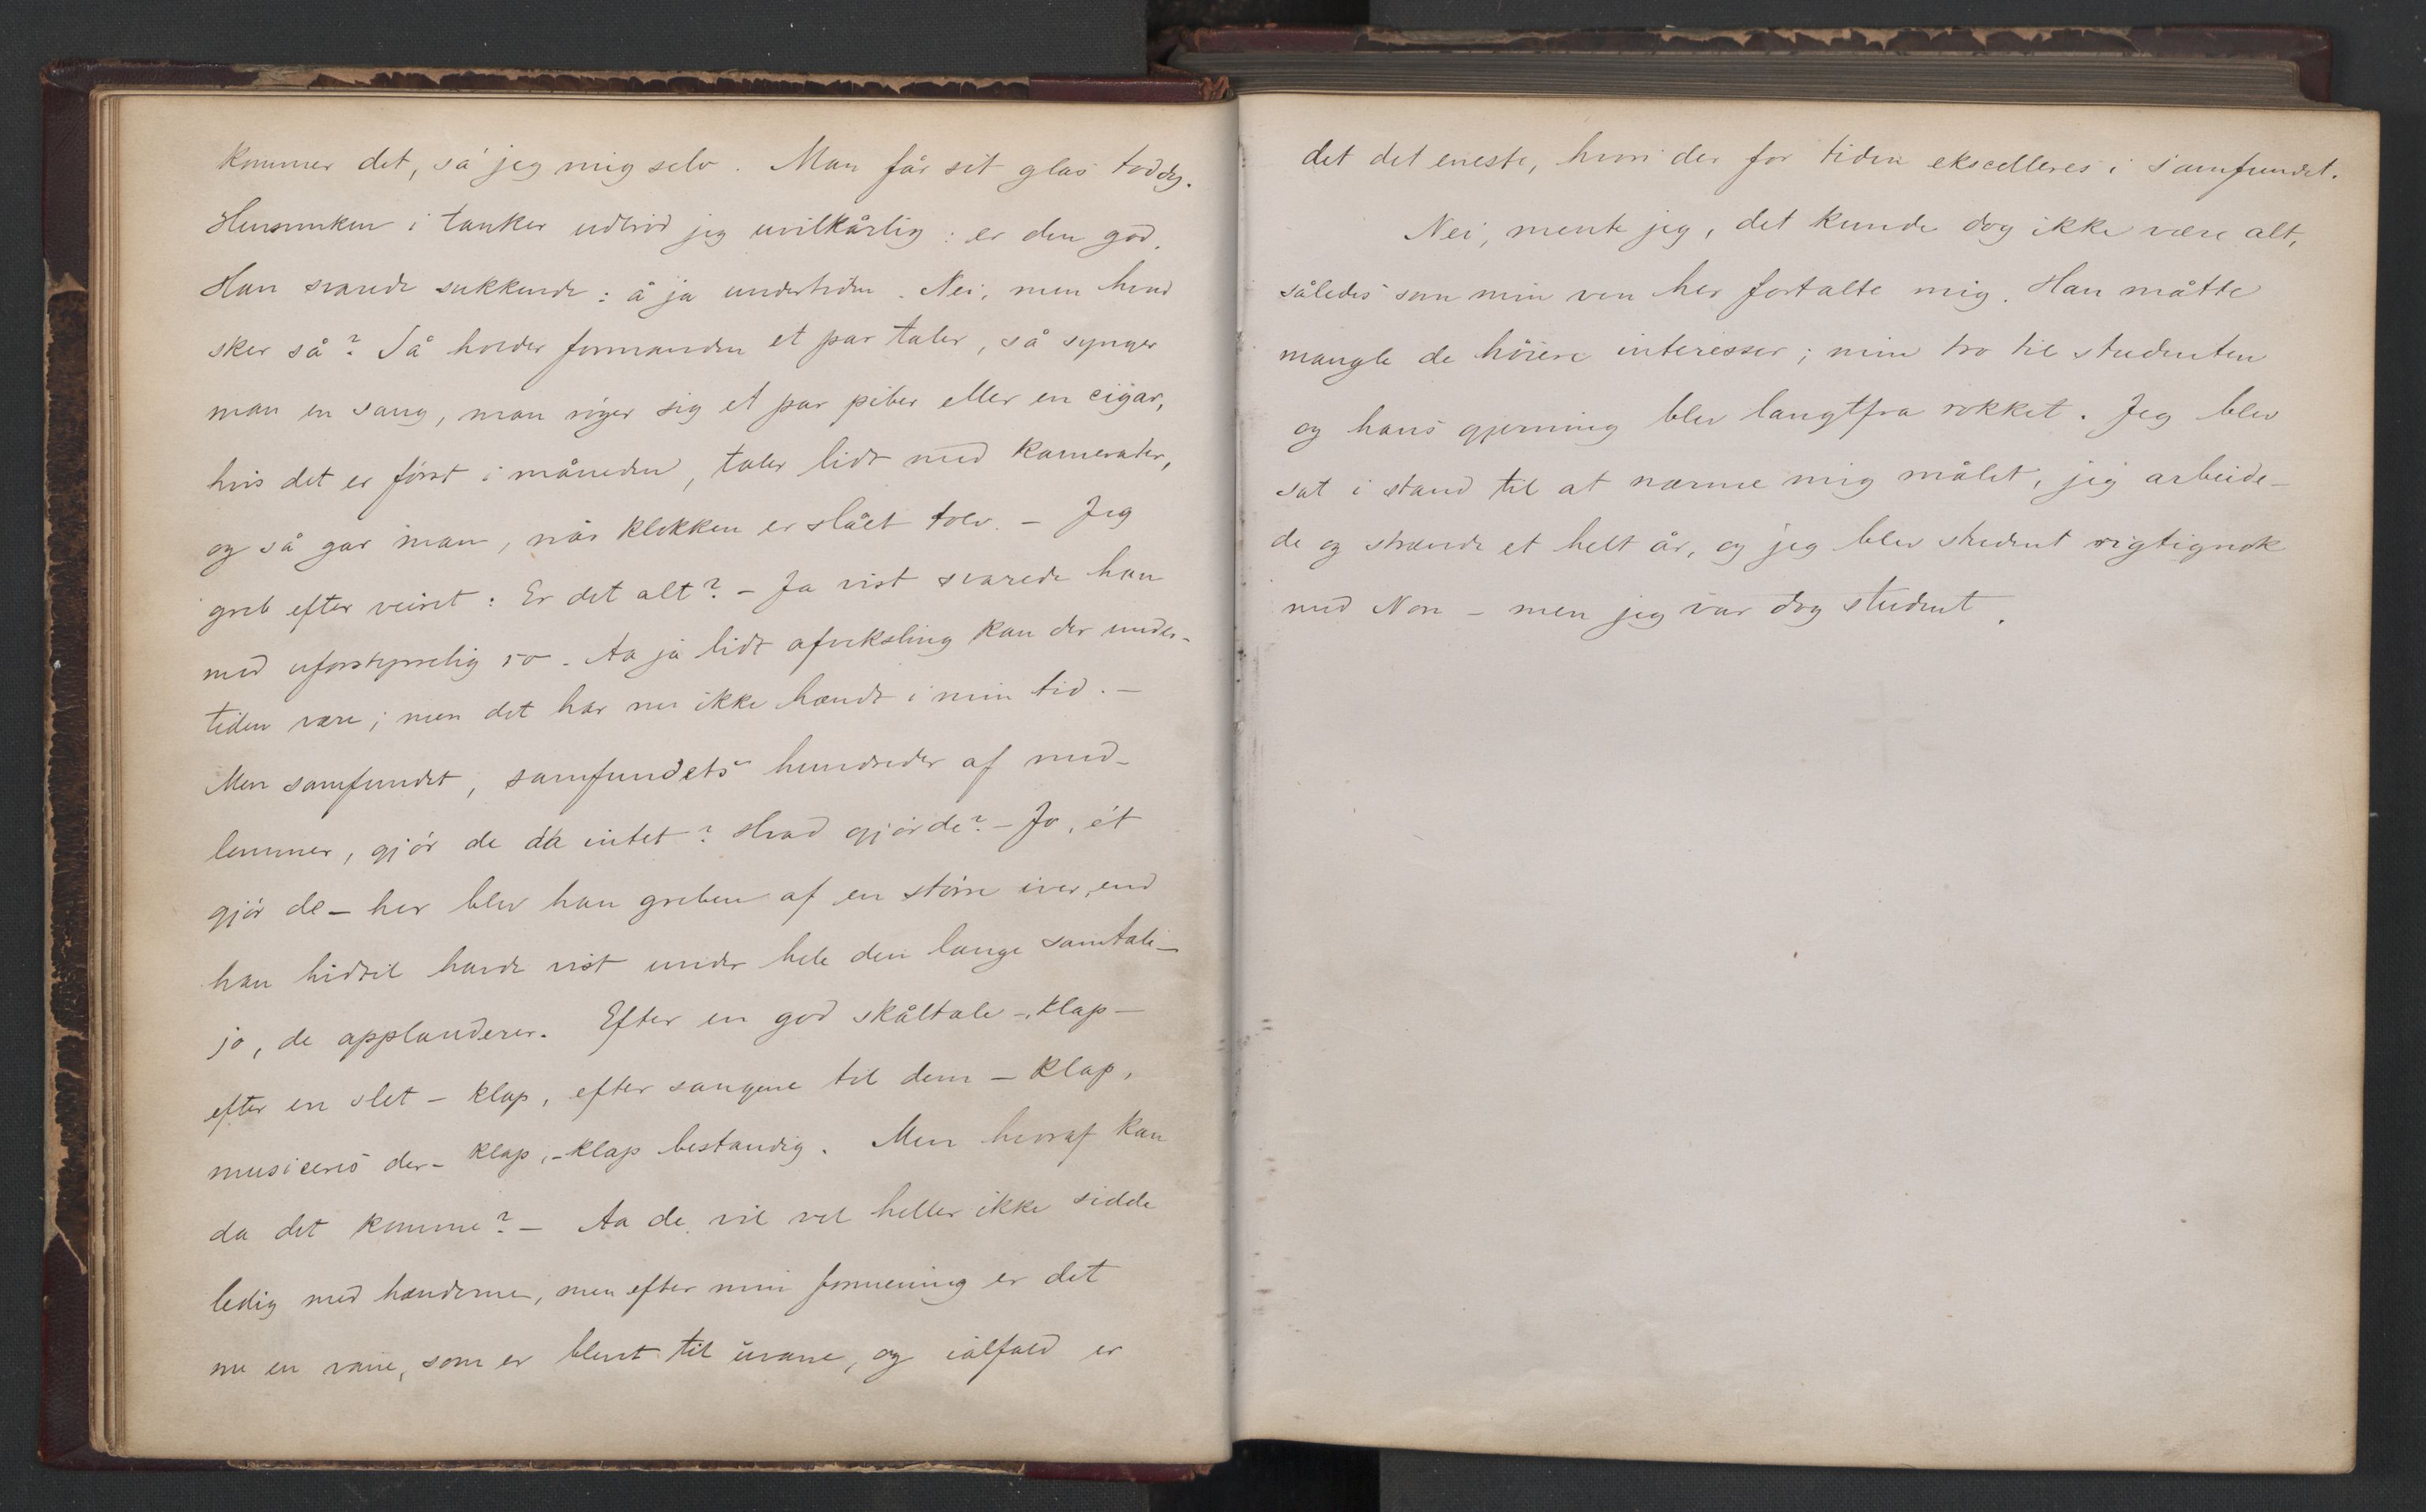 kommer det, så jeg mig selv. Man får sit glas toddy.
Hensunken i tanker udbrød jeg uvilkårlig: er den god.
Han svarede sukkende: å ja undertiden. Nei, men hvad
sker så? Så holder formanden et par taler, så synger
man en sang, man røger sig et par piber eller en cigar,
hvis det er først i måneden, taler lidt med kamerater,
og så gar man, når klokken er slået tolv. – Jeg
greb efter veiret: Er det alt? – Ja vist svarede han
med uforstyrrelig ro. Aa ja lidt afveksling kan der under-
tiden være; men det har nu ikke hændt i min tid. –
Men samfundet, samfundets hundreder af med-
lemmer, gjør de da intet? Hvad gjør de? – Jo, ét
gjør de – her blev han greben af en større iver, end
han hidtil havde vist under hele den lange samtale –
jo, de applauderer. Efter en god skåltale – klap –
efter en slet – klap, efter sangene til dem – klap,
musiceres der – klap, – klap bestandig. Men hvoraf kan
da det komme? – Aa de vil vel heller ikke sidde
ledig med hænderne, men efter min formening er det
nu en vane, som er blevet til uvane, og ialfald er
det det eneste, hvori der for tiden ekscelleres i samfundet.
Nei, mente jeg, det kunde dog ikke være alt,
således som min ven her fortalte mig. Han måtte
mangle de høiere interesser; min tro til studenten
og hans gjerning blev langtfra rokket. Jeg blev
sat i stand til at nærme mig målet, jeg arbeide-
de og strævede et helt år, og jeg blev student rigtignok
med Non – men jeg var dog student.